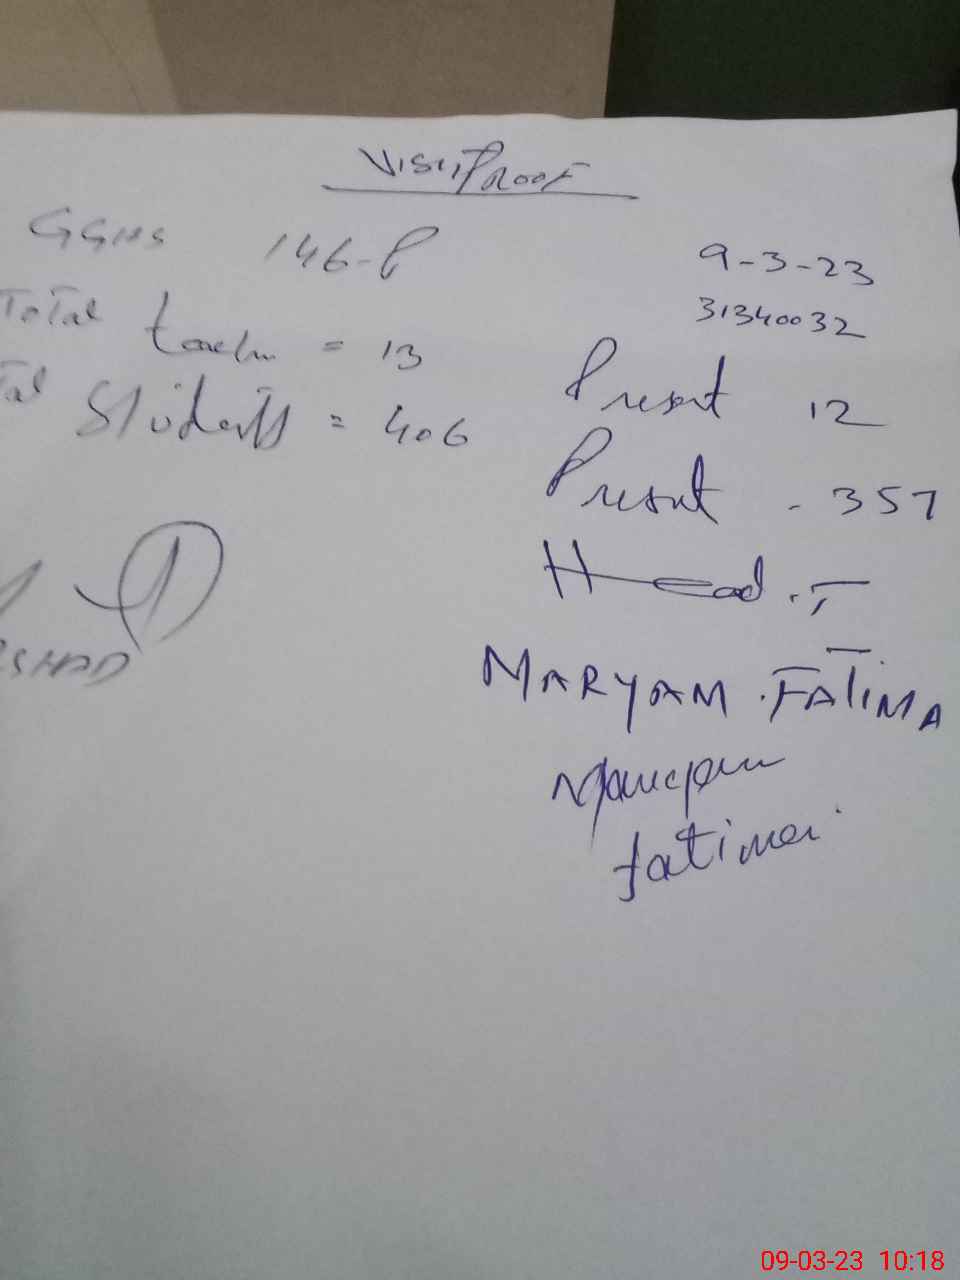 Visit Proof
GGHS 146-P 9-3-23
31340032
Total teacher = 13 Present 12
Students = 406 Present - 357
Head.T
MARYAM.FATIMA
Maryam
fatima
09-03-23 10:18